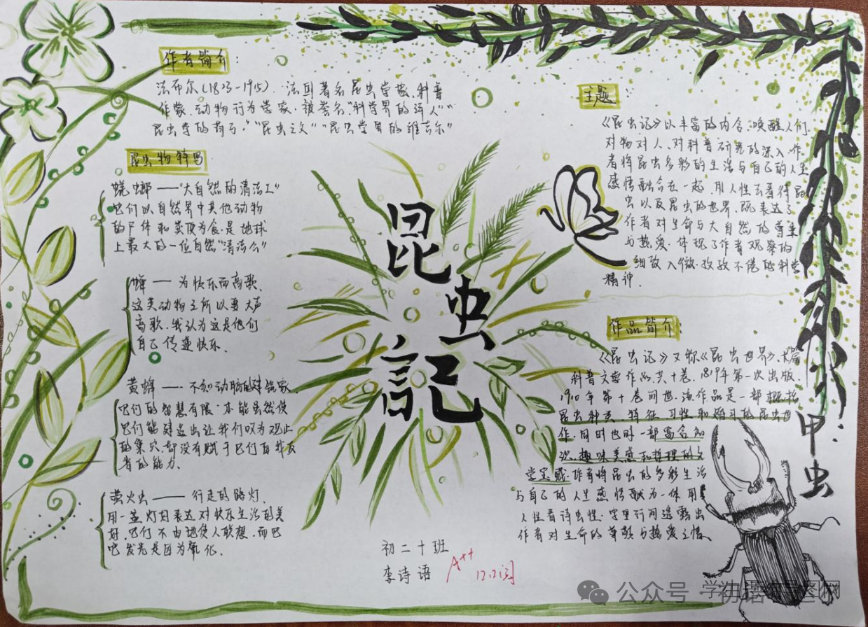 作者简介:
法布尔(1823-1915).法国著名昆虫学家,科普
作家,动物行为学家.被誉为"科学界的诗人"
昆虫学的荷马""昆虫之父""昆虫学界的维吉尔"
昆虫物特写
蜣螂——"大自然的清洁工"
它们以自然界中其他动物
的尸体和粪便为食,是地球
上最大的一位自然"清洁
蝉——为快乐而高歌.
这类动物之所以要大声
高歌.我认为这是他们
自己传递快乐.
黄蜂——不知动脑的建筑家
它们的智慧有限.
它们能建造出让我们叹为观止
的巢穴,却没有赋予它们自我
的能力.
萤火虫——行走的路灯.
用一盏灯,表达对快乐生活的美
好,它们不由地使人联想.而它
发光是因为氧化.
昆
虫
記
主题
《昆虫记》以丰富的内容,唤醒人们
对物对人,对科普研究的深入.作
者将昆虫多彩的生活与自己的人生
感悟融合在一起.用人性去看待昆
虫以及昆虫的世界.既表达了
作者对生命与大自然的尊重
与热爱.体现了作者观察的
细致入微,孜孜不倦的科学
精神.
作品简介:
《昆虫记》又称《昆虫世界》,长篇
科普文学作品,共十卷.1879年第一次出版,
1910年第十卷问世.该作品是一部概括
昆虫种类、特征、习性和
作,同时也是一部富含知
识、趣味美感和哲理的文
学宝藏.作者将昆虫的多彩生活
与自己的人生感悟融为一体,用
人性看待虫性.字里行间透露出
作者对生命的尊敬与热爱之情.
甲
虫
初二十班
李诗语
A++
12.12阅
公众号